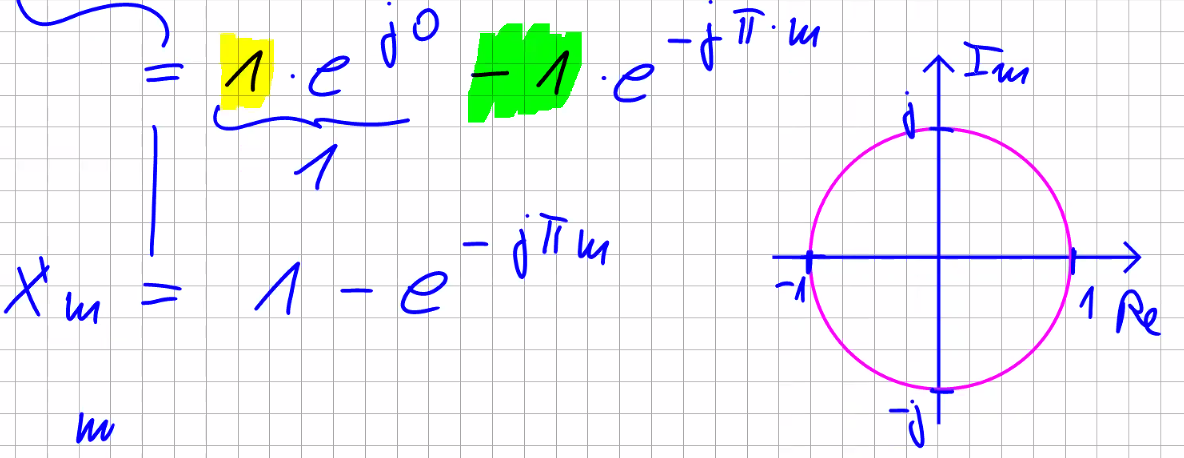 = 1 · e^{j0} − 1 · e^{−jπ·m}
1
X_m = 1 − e^{−jπm}
m
Im
j
−1
1 Re
−j